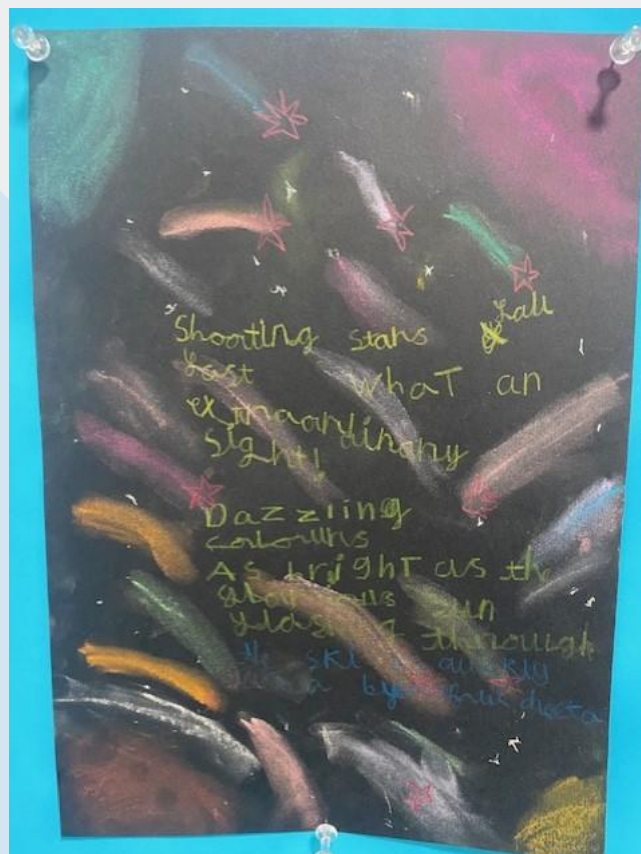 Shooting stars fall
fast what an
extraordinary
sight!
Dazzling
colours
As bright as the
glorious sun
flashing through
the sky as quickly